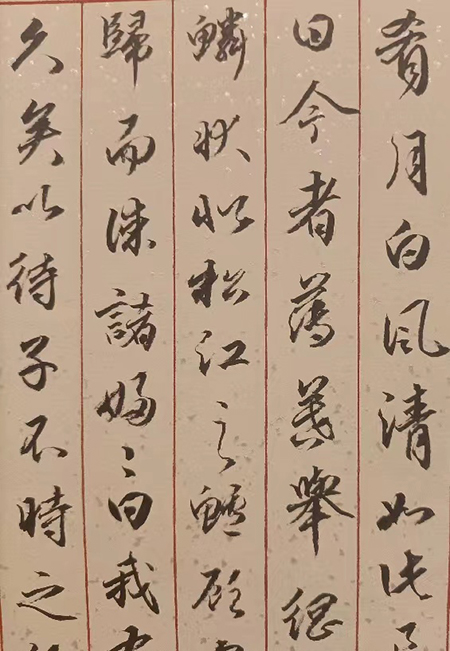 肴月白风清如此
曰今者薄暮舉網
鱗状似松江之鱸顧
歸而謀諸婦〻曰我
久矣以待子不時之